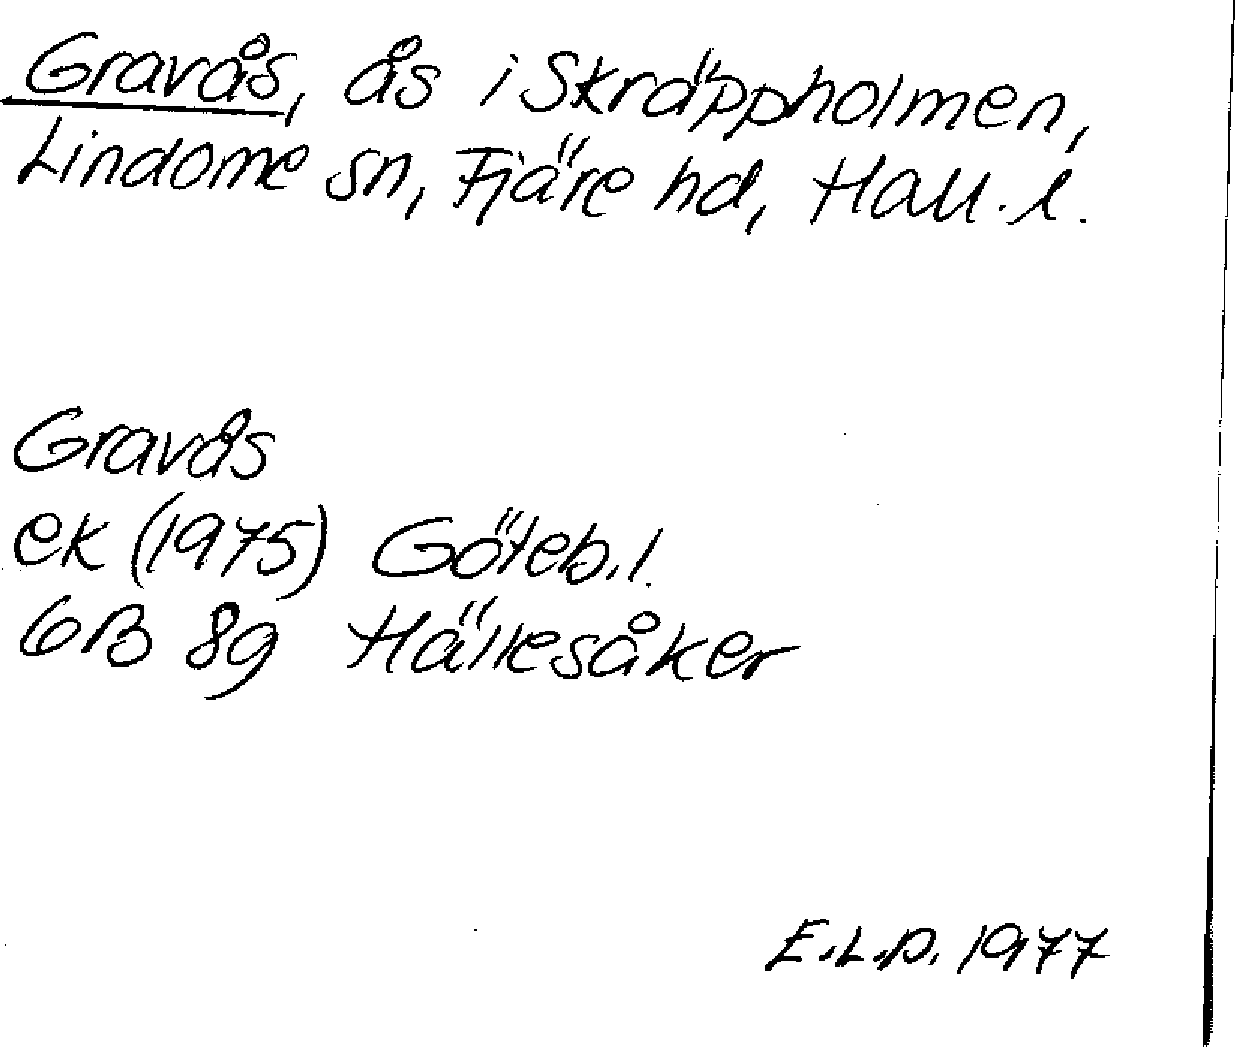 Gravås, ås i Skräppholmen,
Lindome sn, Fjäre hd, Hall. l.
Gravås
ek (1975) Göteb. l.
6B 8g Hällesåker
E.L.D. 1977